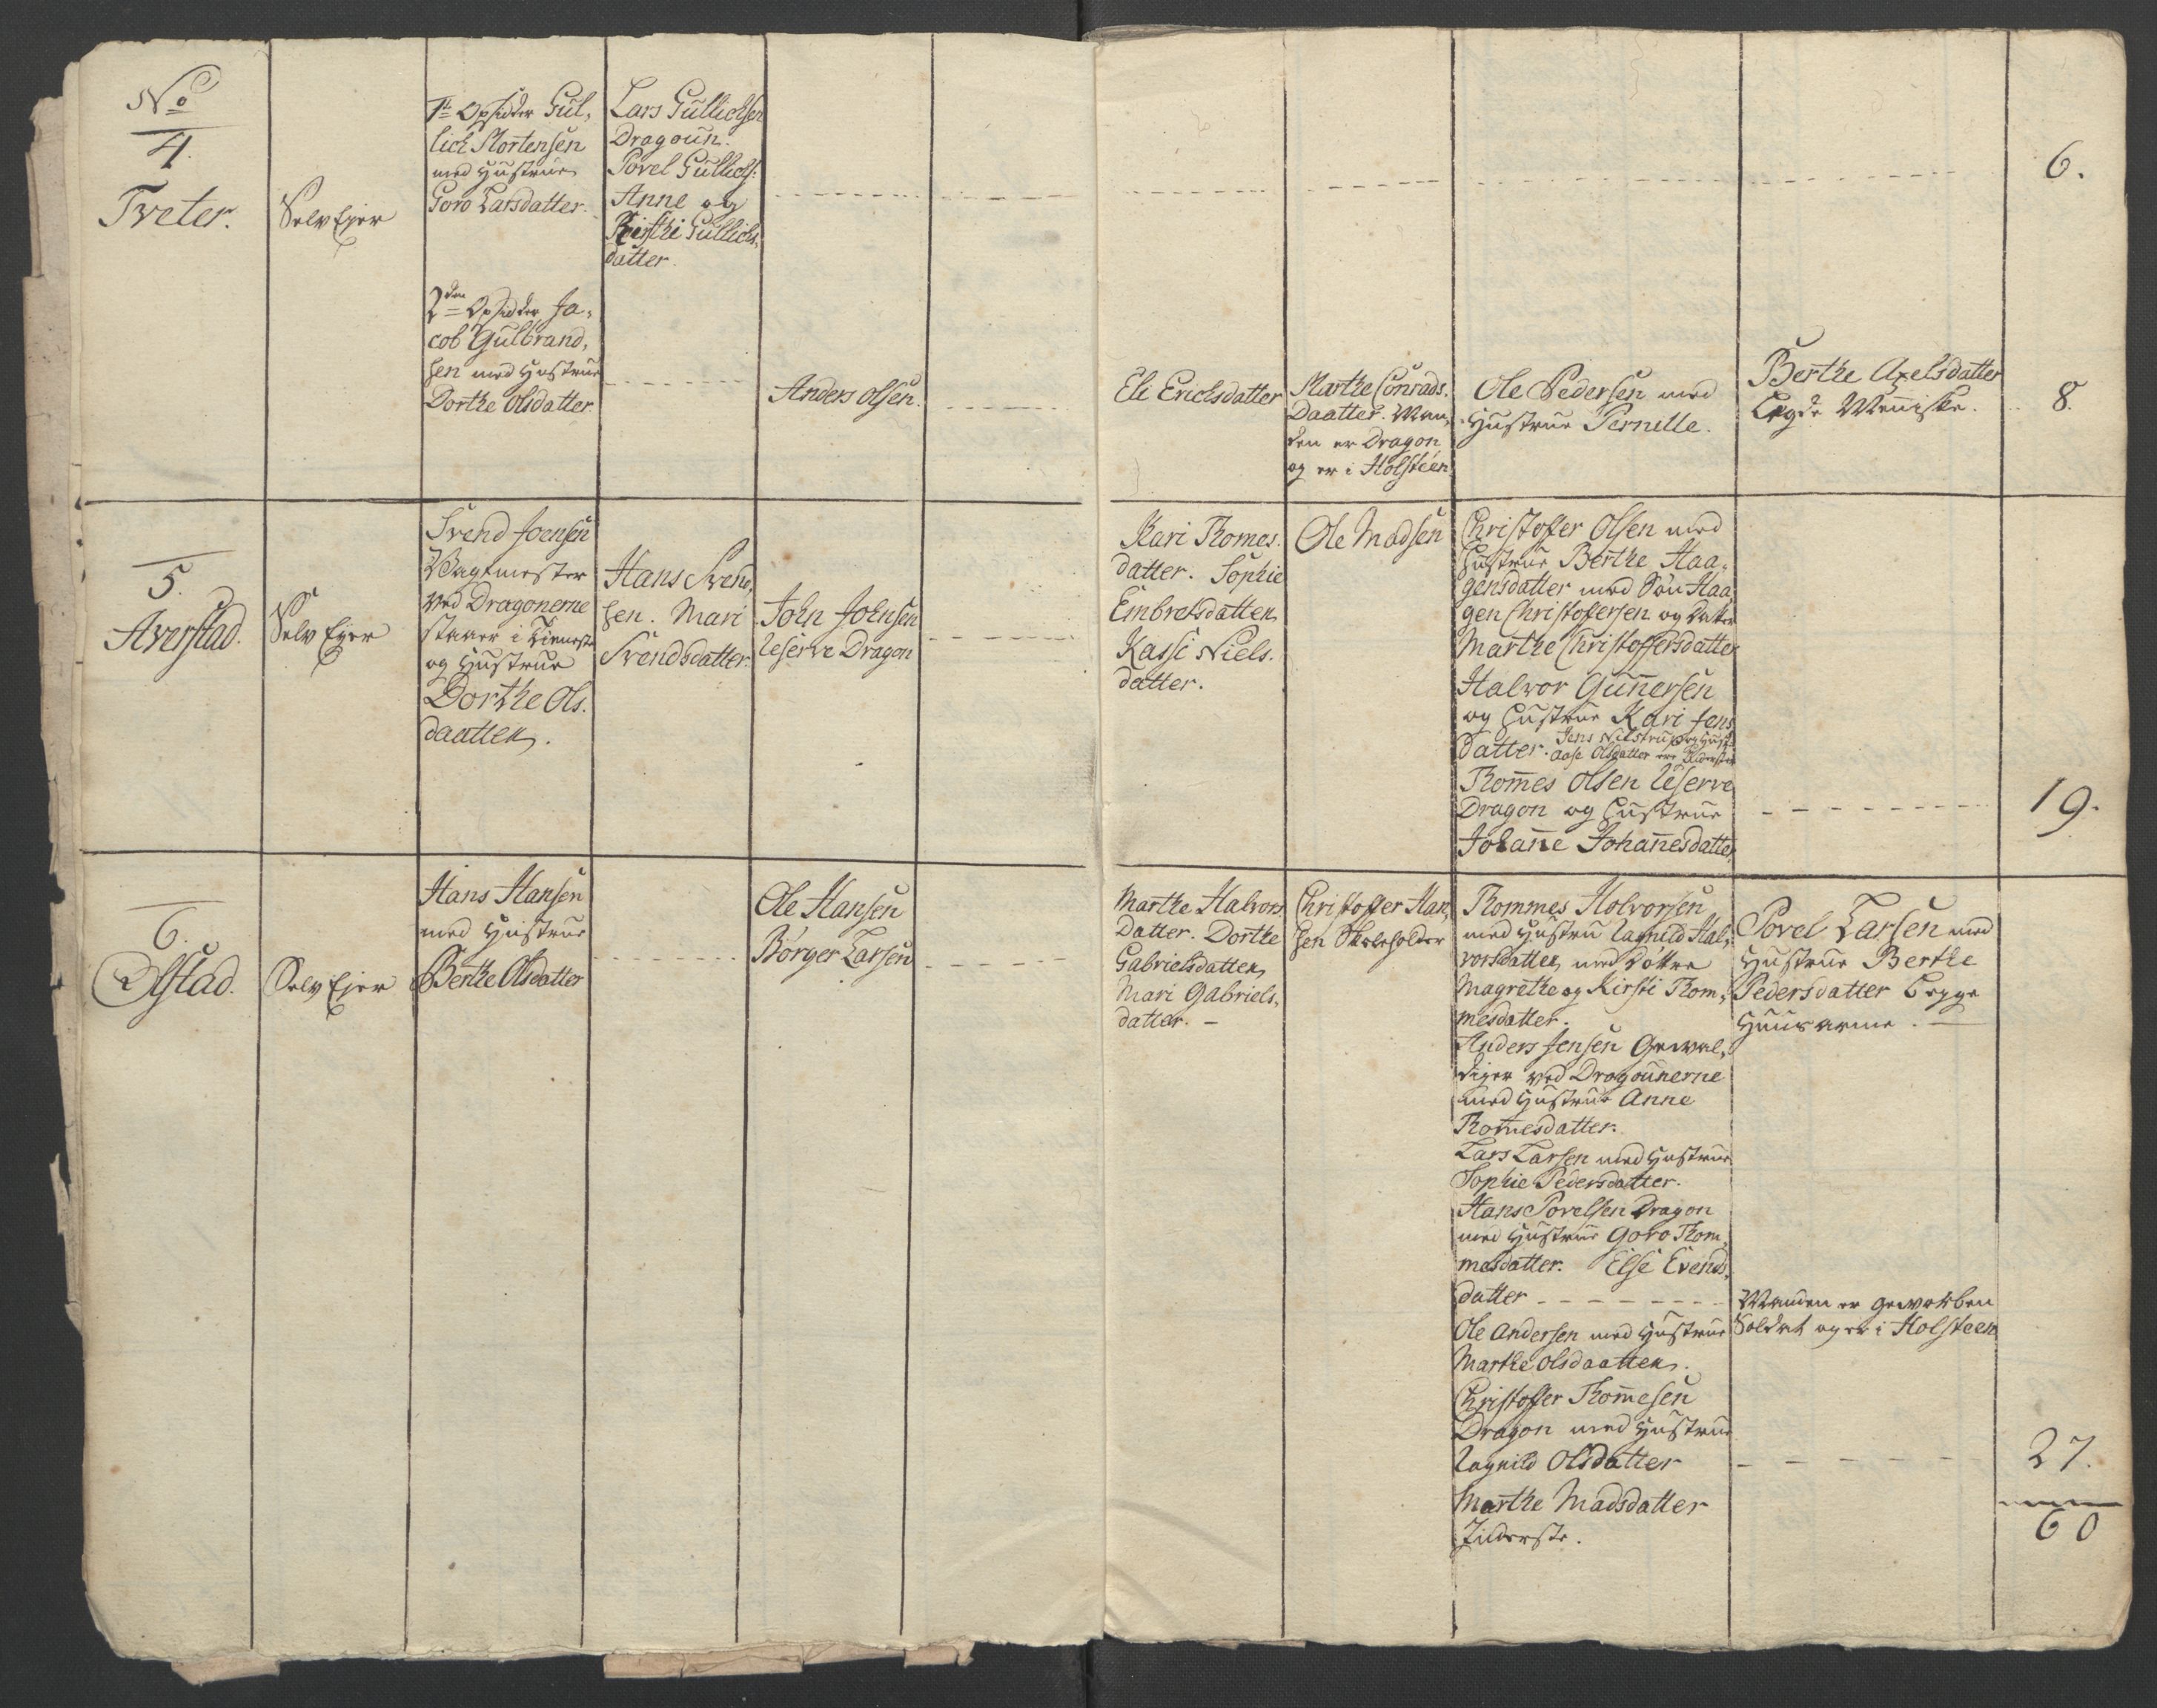 No
4.
Tveter.
Selv Ejer
1te Opsidder Gul,
lich Mortensen
med Hustrue
Goro Larsdatter.
Lars Gullichsen
Dragoun.
Povel Gullichs:
Anne og
Kirsti Gullichs,
datter.
6.
2den Opsidder Ja,
cob Gulbrand,
sen med Hustrue
Dorthe Olsdatter
Anders Olsen.
Eli Erichsdatter
Marthe Conrads,
Daatter. Man,
den er Dragon
og er i Holsteen
Ole Pedersen med
Hustrue Pernille.
Berthe Axelsdatter
Legde Menniske.
8.
5.
Averstad.
Selv Ejer
Svend Joensen
Vagtmester
ved Dragonerne
staaer i Tieneste
og Hustrue
Dorthe Ols,
daatter.
Hans Svend,
sen. Mari
Svendsdatter.
John Johnsen
Reserve Dragon
Kari Thomes,
datter. Sophie
Embretsdatter
Kassi Niels,
datter.
Ole Madsen
Christoffer Olsen med
Hustrue Berthe Haa,
gensdatter med Søn Haa,
gen Christoffersen og Datter
Marthe Christoffersdatter
Halvor Gunnersen
og Hustrue Kari Jens
datter. Jens Nilstrup og Hust:
Aase Olsdatter ere Inderster
Thommes Olsen Reserve
Dragon og Hustrue
Johanne Johannesdatter
19.
6.
Olstad.
Selv Ejer
Hans Hansen
med Hustrue
Berthe Olsdatter
Ole Hansen
Børger Larsen
Marthe Halvors
Datter. Dorthe
Gabrielsdatter
Mari Gabriels,
datter. -
Christoffer Han,
sen Skoleholder
Thommes Holvorsen
med Hustru Ragnild Hal,
vorsdatter, med Døttre
Magrethe og Kirsti Thom,
mesdatter.
Anders Jensen Gewal,
diger ved Dragounerne
med Hustrue Anne
Thomesdatter.
Lars Larsen med Hustrue
Sophie Pedersdatter.
Hans Povelsen Dragon
med Hustrue Goro Thom,
mesdatter. Else Evends,
datter
Ole Andersen med Hustrue
Marthe Olsdaatter.
Christoffer Thommesen
Dragon med Hustrue
Ragnild Olsdatter
Marthe Madsdatter
Inderste.
Povel Larsen med
Hustrue Berthe
Pedersdatter begge
Huusarme.
Manden er geworben
Soldat og er i Holsteen
27.
60